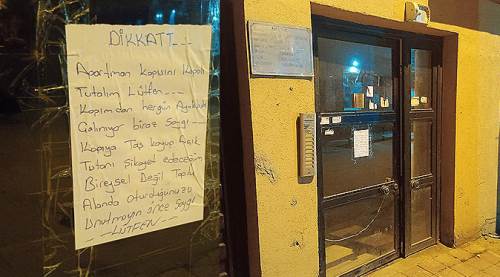 DİKKAT!...
Apartman Kapısını Kapalı
Tutalım Lütfen....
Kapımdan hergün Ayakkabı
Çalınıyor biraz Saygı...
Kapıya Taş koyup Açık
Tutanı Şikayet edeceğim
Bireysel Değil Toplu
Alanda oturduğunuzu
Unutmayın önce Saygı
LÜTFEN